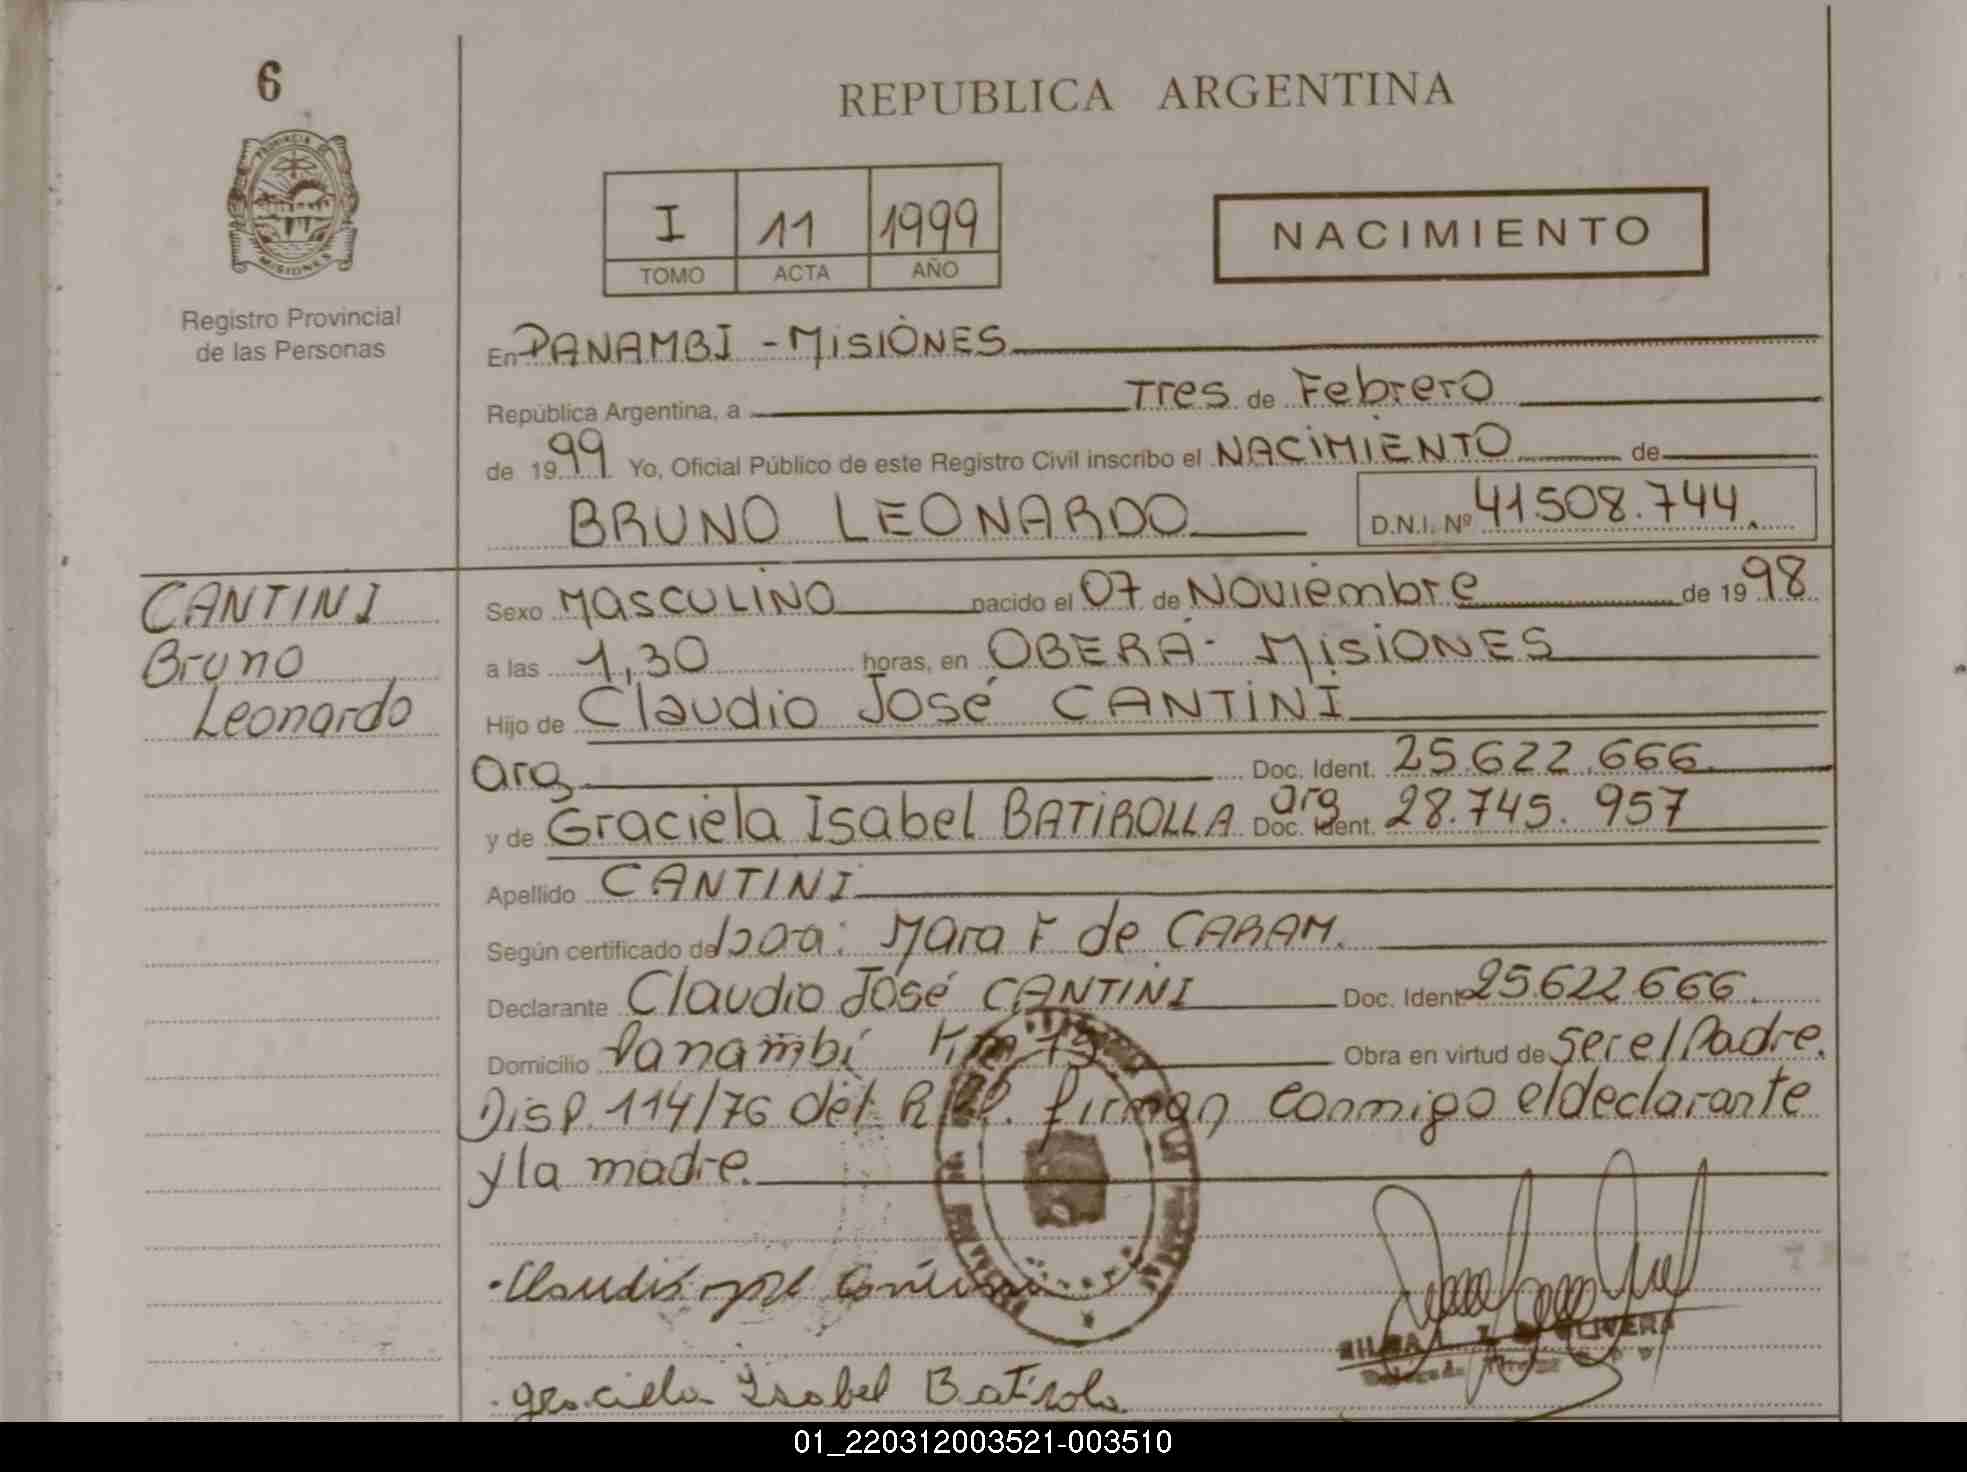 6
REPUBLICA ARGENTINA
PROVINCIA DE
MISIONES
I 11 1999
TOMO ACTA AÑO
NACIMIENTO
Registro Provincial
de las Personas
En PANAMBI - MISIONES
República Argentina, a Tres de Febrero
de 1999 Yo, Oficial Público de este Registro Civil inscribo el NACIMIENTO de
BRUNO LEONARDO D.N.I. Nº 41508.744.
CANTINI
Bruno
Leonardo
Sexo MASCULINO nacido el 07 de Noviembre de 1998
a las 1,30 horas, en OBERÁ - MISIONES
Hijo de Claudio José CANTINI
arg Doc. Ident. 25.622.666.
y de Graciela Isabel BATIROLLA arg Doc. Ident. 28.745.957
Apellido CANTINI
Según certificado de Mara F de CARAM.
Declarante Claudio José CANTINI Doc. Ident. 25.622.666.
Domicilio Panambí Km Obra en virtud de ser el Padre.
Disp. 114/76 del firman conmigo el declarante
y la madre.
Claudio José Cantini
Graciela Isabel Batirola
OLIVERA
01_220312003521-003510